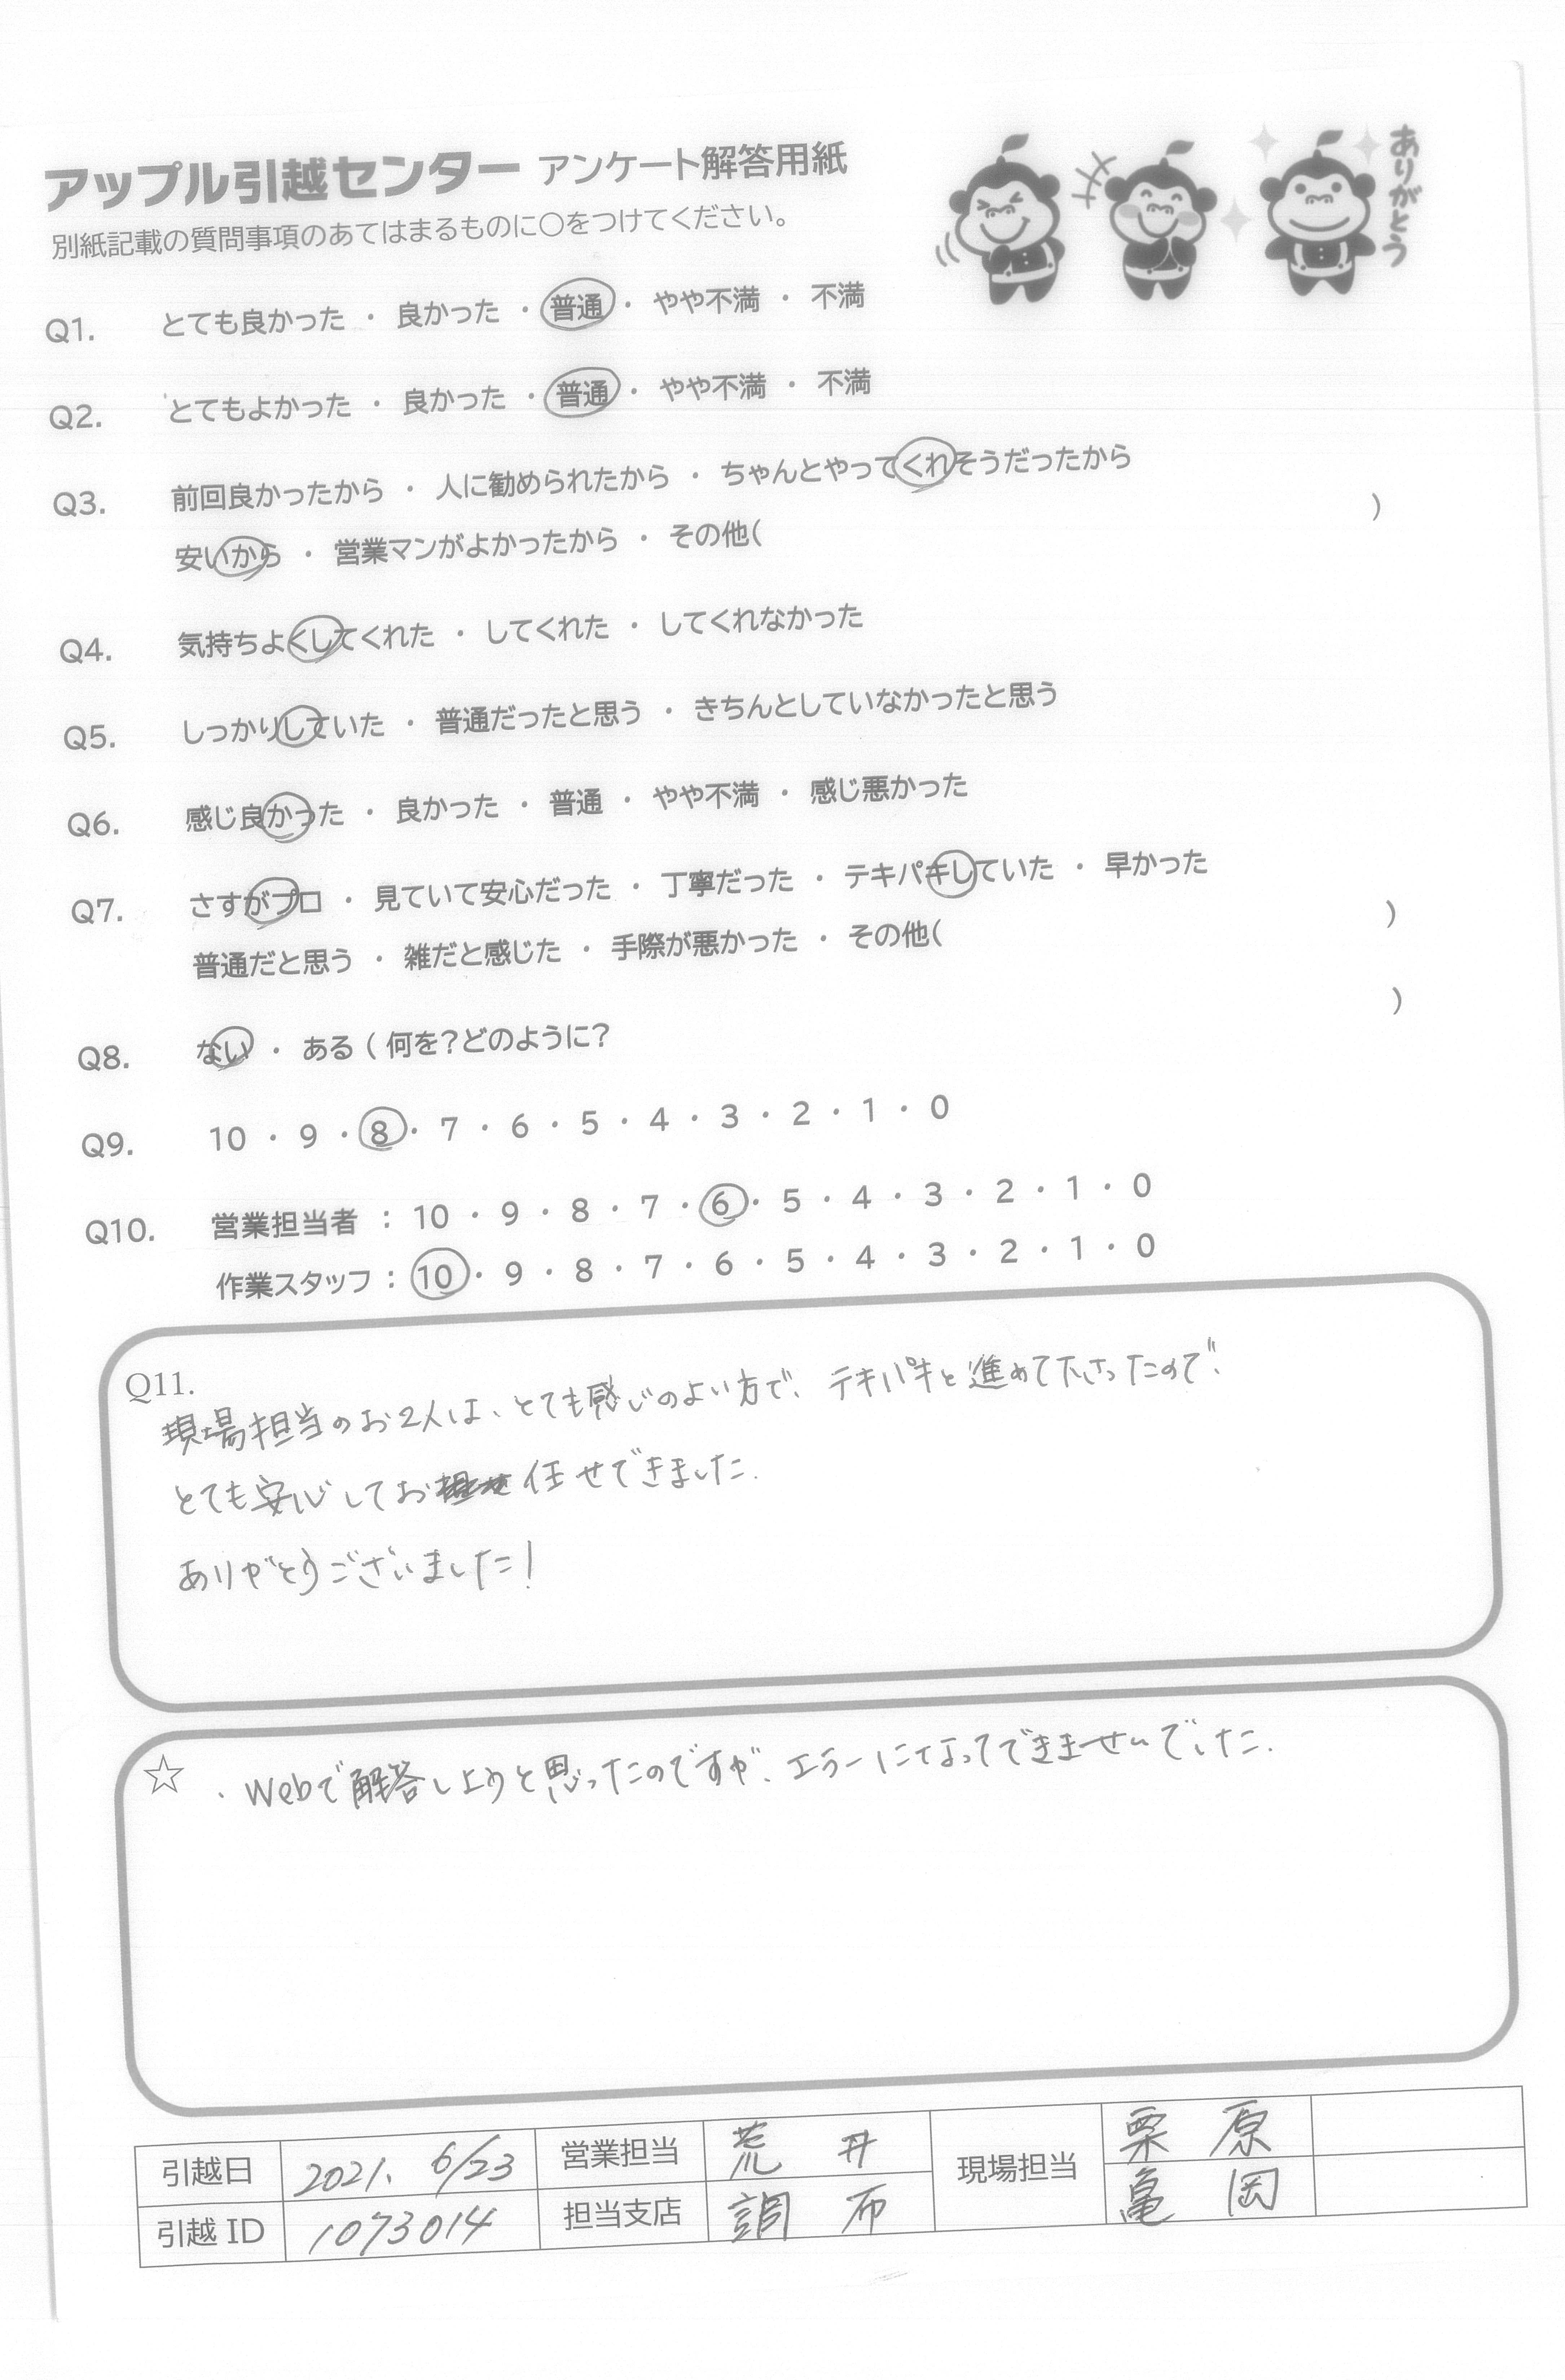 アップル引越センター アンケート解答用紙
ありがとう
別紙記載の質問事項のあてはまるものに○をつけてください。
Q1. とても良かった ・ 良かった ・ 普通 ・ やや不満 ・ 不満
Q2. とてもよかった ・ 良かった ・ 普通 ・ やや不満 ・ 不満
Q3. 前回良かったから ・ 人に勧められたから ・ ちゃんとやってくれそうだったから
安いから ・ 営業マンがよかったから ・ その他( )
Q4. 気持ちよくしてくれた ・ してくれた ・ してくれなかった
Q5. しっかりしていた ・ 普通だったと思う ・ きちんとしていなかったと思う
Q6. 感じ良かった ・ 良かった ・ 普通 ・ やや不満 ・ 感じ悪かった
Q7. さすがプロ ・ 見ていて安心だった ・ 丁寧だった ・ テキパキしていた ・ 早かった
普通だと思う ・ 雑だと感じた ・ 手際が悪かった ・ その他( )
Q8. ない ・ ある ( 何を?どのように? )
Q9. 10 ・ 9 ・ 8 ・ 7 ・ 6 ・ 5 ・ 4 ・ 3 ・ 2 ・ 1 ・ 0
Q10. 営業担当者 : 10 ・ 9 ・ 8 ・ 7 ・ 6 ・ 5 ・ 4 ・ 3 ・ 2 ・ 1 ・ 0
作業スタッフ : 10 ・ 9 ・ 8 ・ 7 ・ 6 ・ 5 ・ 4 ・ 3 ・ 2 ・ 1 ・ 0
Q11.
現場担当のお2人は、とても感じのよい方で、テキパキと進めて下さったので、
とても安心してお任せできました.
ありがとうございました!
☆ ・Webで解答しようと思ったのですが、エラーになってできませんでした.
引越日 2021. 6/23 営業担当 荒井 現場担当 栗原
引越ID 1073014 担当支店 調布 亀岡